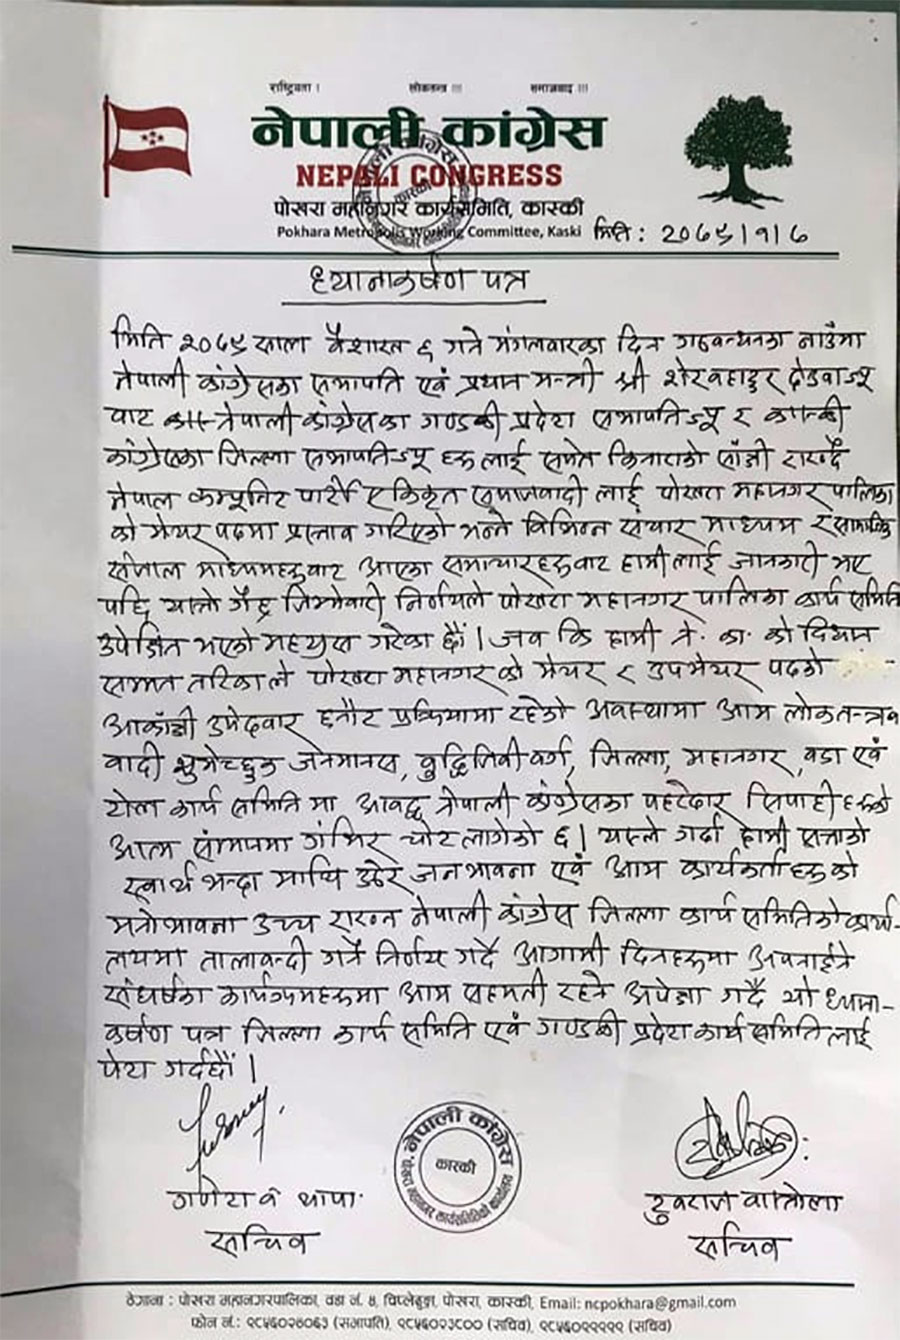 राष्ट्रियता । लोकतन्त्र !!! समाजवाद !!!
नेपाली कांग्रेस
NEPALI CONGRESS
पोखरा महानगर कार्यसमिति, कास्की
Pokhara Metropolis Working Committee, Kaski मिति : २०७९।१।७
ध्यानाकर्षण पत्र
मिति २०७९ साल बैशाख ६ गते मंगलवारका दिन गठबन्धनका नाउँमा
नेपाली कांग्रेसका सभापति एवं प्रधान मन्त्री श्री शेरबहादुर देउवाज्यू
बाट नेपाली कांग्रेसका गण्डकी प्रदेश सभापतिज्यू र कास्की
कांग्रेसका जिल्ला सभापतिज्यू हरु लाई समेत किनाराको साँक्षी राख्दै
नेपाल कम्युनिट पार्टी एकिकृत समाजवादी लाई पोखरा महानगर पालिका
को मेयर पदमा प्रस्ताव गरिएको भन्ने विभिन्न संचार माध्यम र सामाजिक
सोजाल माध्यमहरुबाट आएका समाचारहरुबाट हामी लाई जानकारी भए
पछि यस्तो गैह्र जिम्मेवारी निर्णयले पोखरा महानगर पालिका कार्य समिति
उपेक्षित भएको महशुस गरेका छौं । जब कि हामी ने. का. को विधान
सम्मत तरिकाले पोखरा महानगर को मेयर र उपमेयर पदको
आकांक्षी उमेदवार छनौट प्रक्रियामा रहेको अवस्थामा आम लोकतन्त्र
वादी शुभेच्छुक जनमानस, बुद्धिजिवी वर्ग, जिल्ला, महानगर, वडा एवं
टोल कार्य समिति मा आवद्ध नेपाली कांग्रेसका पहरेदार सिपाही हरुको
आत्म गंभिर चोट लागेको छ । यस्ले गर्दा हामी सत्ताको
स्वार्थ भन्दा माथि उठेर जनभावना एवं आम कार्यकर्ता हरु को
मनोभावना उच्च राख्न नेपाली कांग्रेस जिल्ला कार्य समितिको कार्या-
लयमा तालाबन्दी गर्ने निर्णय गर्दै आगामी दिनहरुमा अपनाईने
संघर्षका कार्यक्रमहरुमा आम सहमती रहने अपेक्षा गर्दै यो ध्याना-
कर्षण पत्र जिल्ला कार्य समिति एवं गण्डकी प्रदेश कार्य समिति लाई
पेश गर्दछौं ।
नेपाली कांग्रेस
कास्की
गणेश व थापा
सचिव
युवराज वाग्लेला
सचिव
ठेगाना : पोखरा महानगरपालिका, वडा नं. ८, चिप्लेढुङ्गा, पोखरा, कास्की, Email: ncpokhara@gmail.com
फोन नं.: ९८५६०२८०६३ (सभापति), ९८५६०२३८०० (सचिव), ९८५६०११११९ (सचिव)